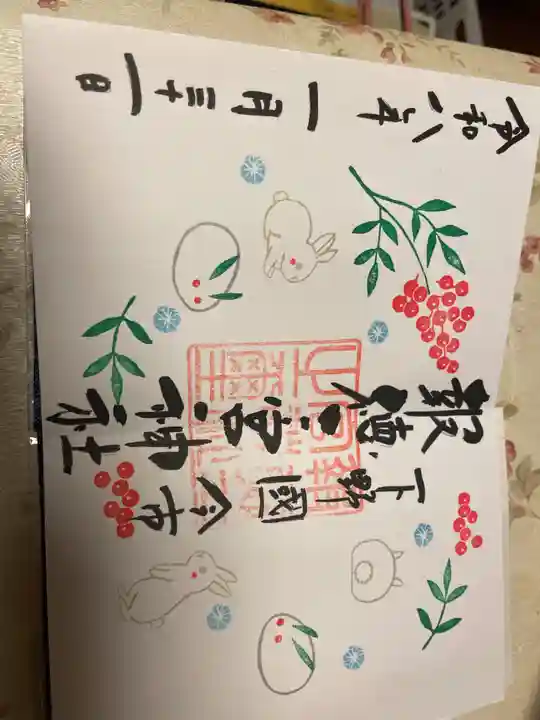 下野國今市
報徳二宮神社
令和八年一月三十一日